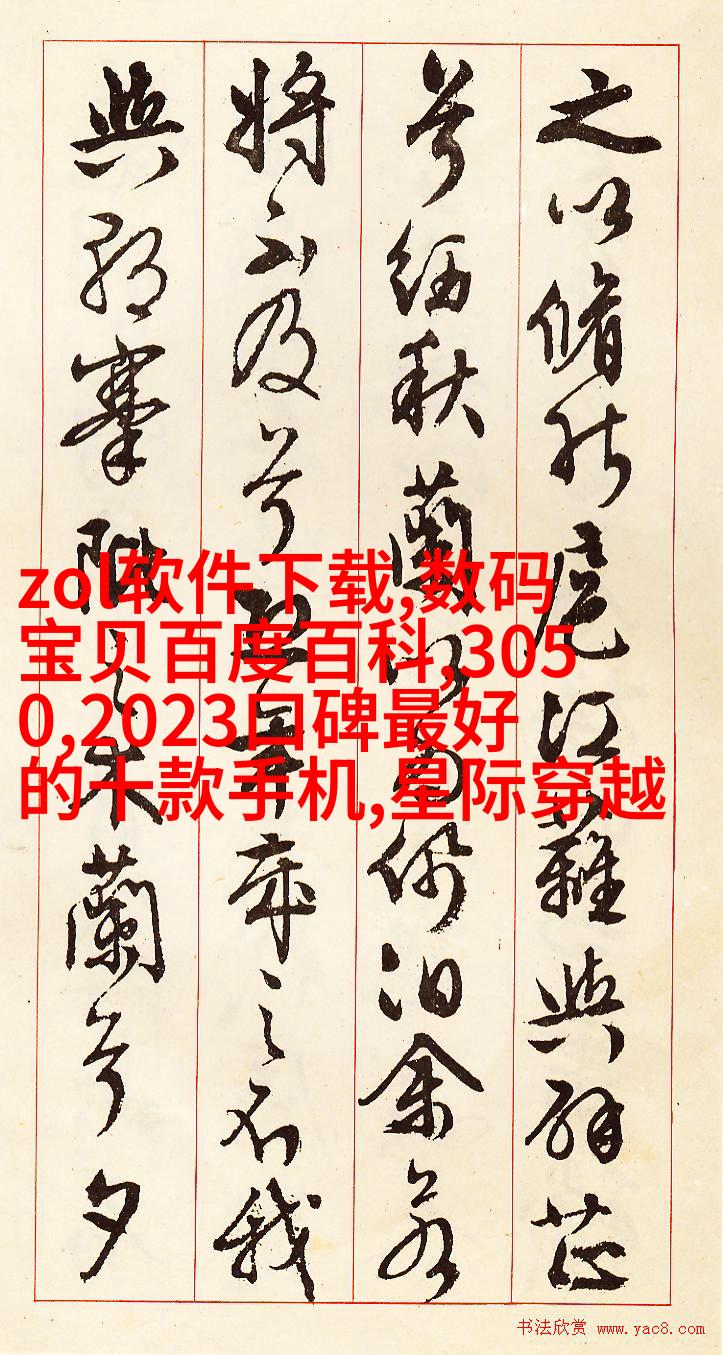 之以脩能扈江蘺與辟芷
兮紉秋蘭以為佩汩余若
將不及兮恐年歲之不我
與朝搴阰之木蘭兮夕
zol软件下载,数码
宝贝百度百科,305
0,2023口碑最好
的十款手机,星际穿越
书法欣赏 www.yac8.com